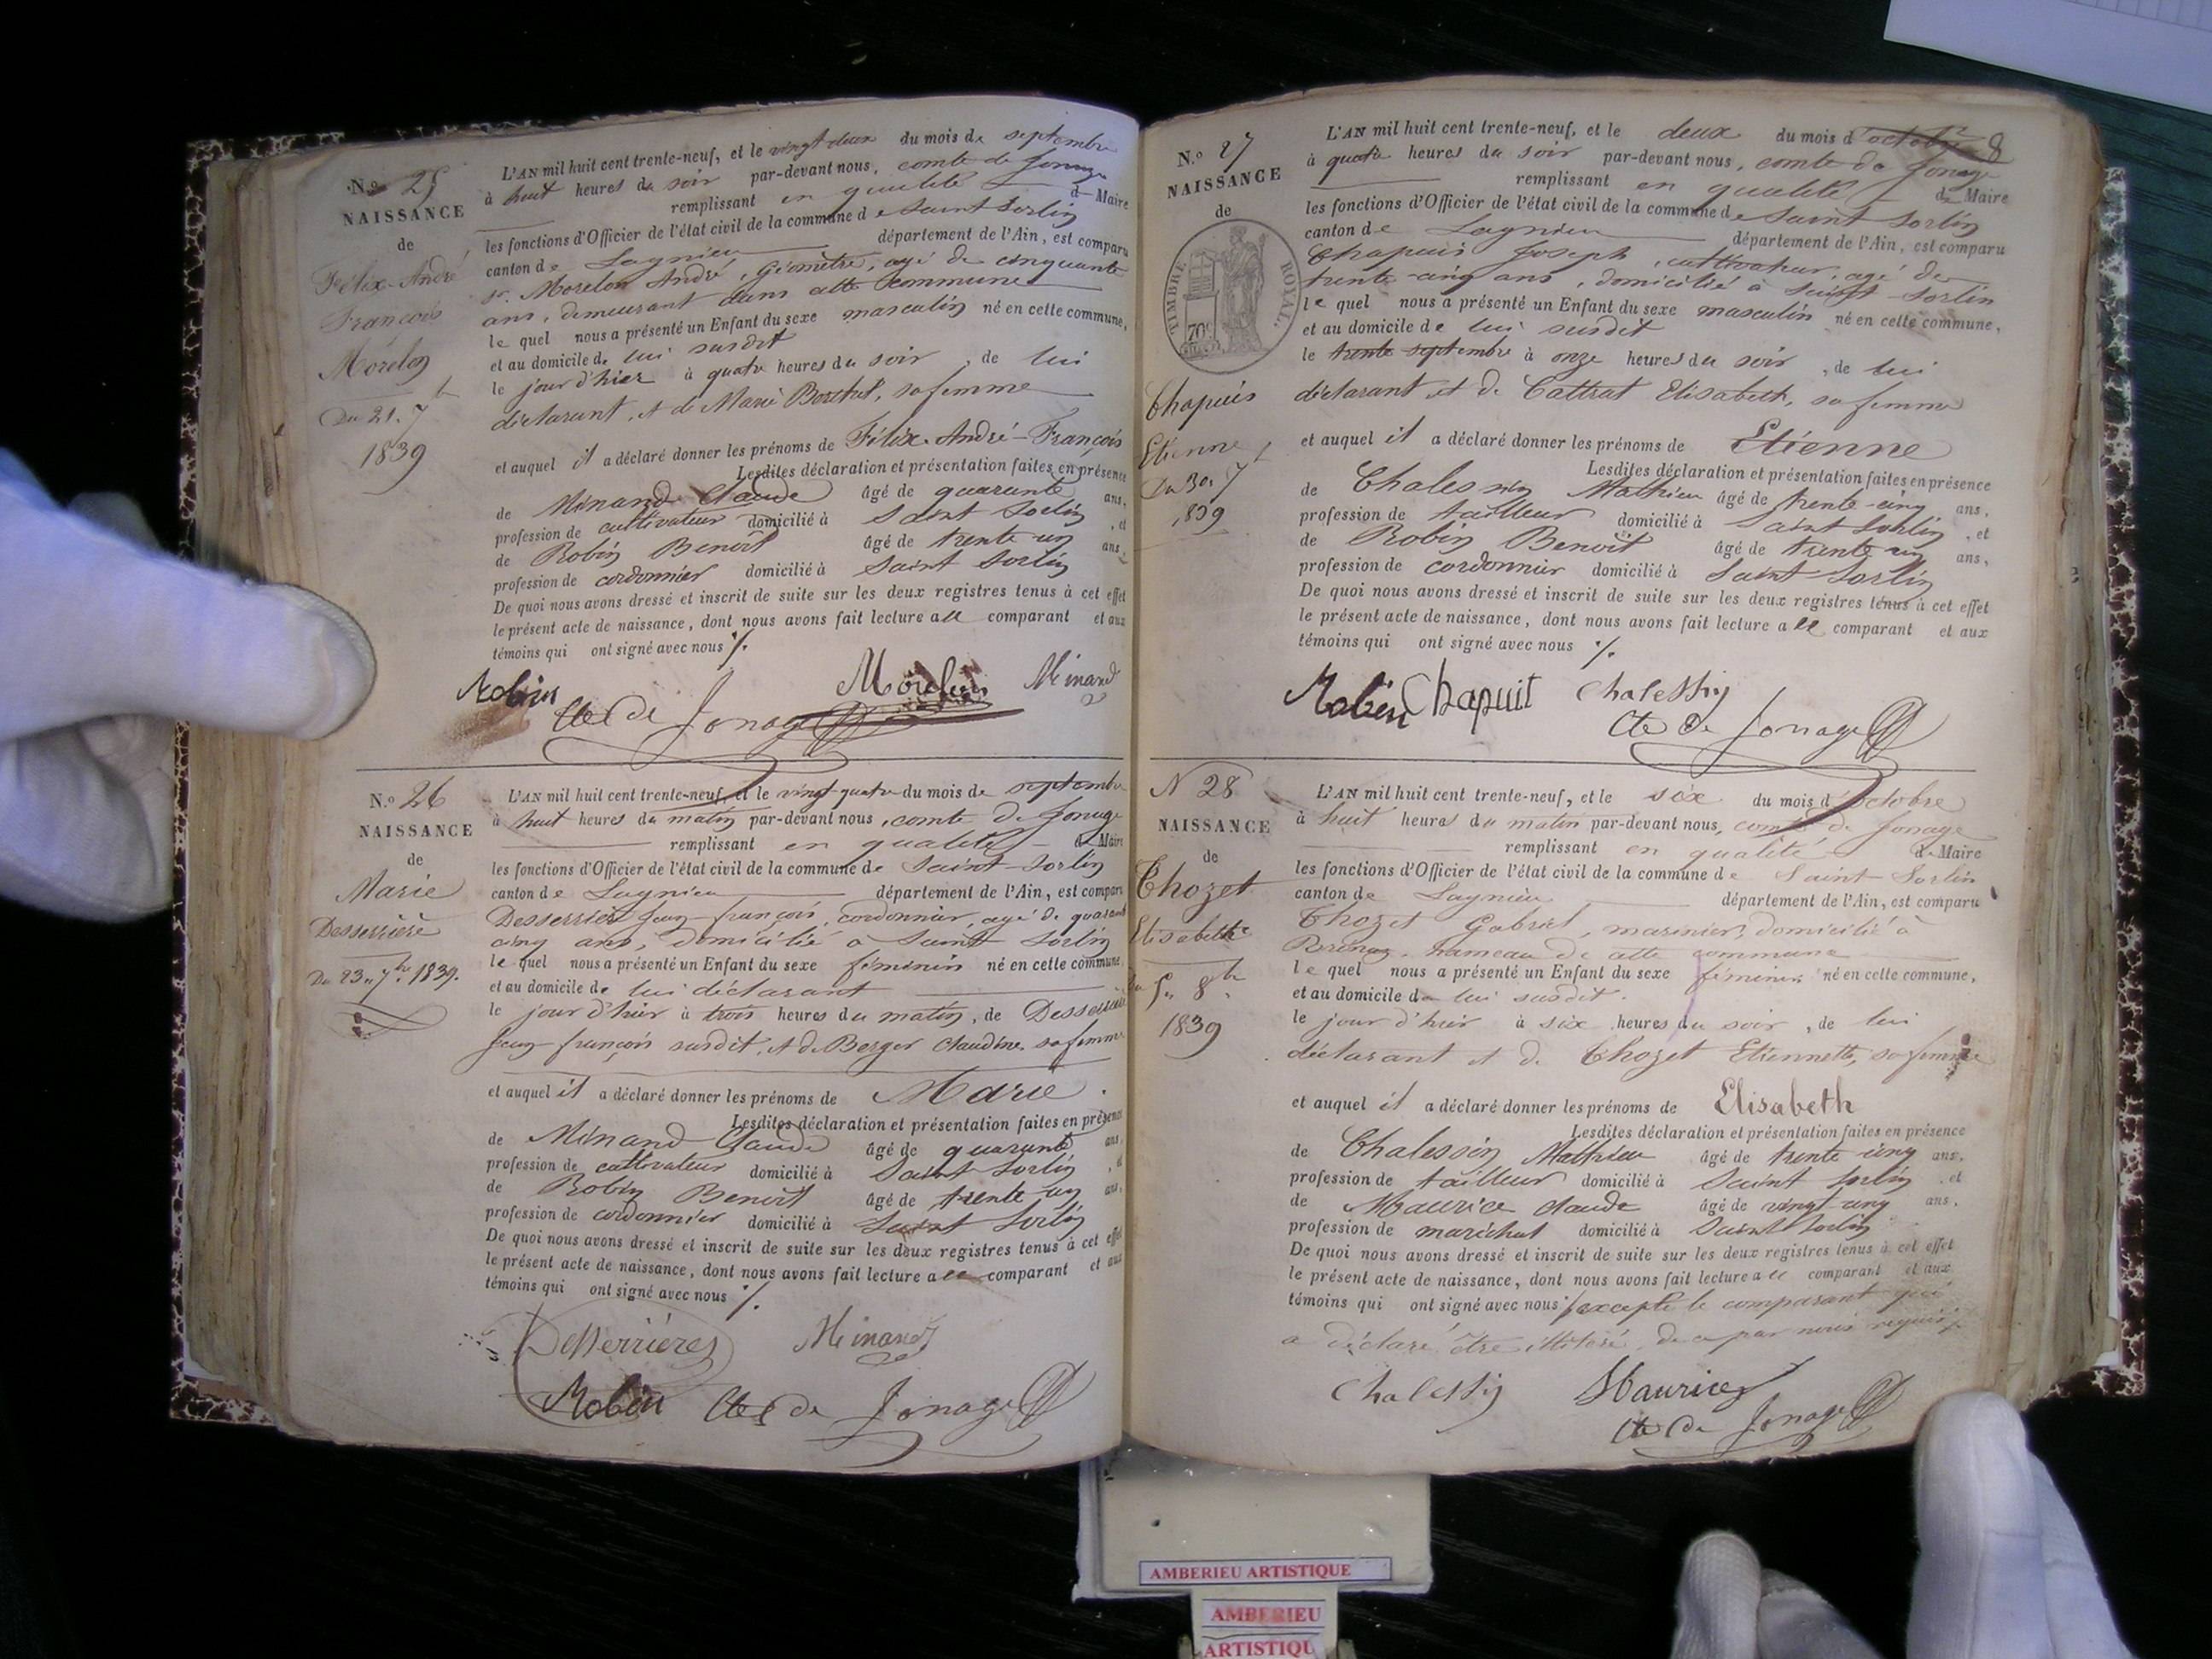 N.º 25
NAISSANCE
de
Félix-André
François
Morelon
Du 21. 7b
1839
L'AN mil huit cent trente-neuf, et le vingt deux du mois de septembre
à huit heures du soir par-devant nous, comte de Jonage
remplissant en qualité de Maire
les fonctions d'Officier de l'état civil de la commune de Saint Sorlin
canton de Lagnieu département de l'Ain, est comparu
sr. Morelon André, Géomètre, agé de cinquante
ans, demeurant dans cette commune
lequel nous a présenté un Enfant du sexe masculin né en cette commune,
et au domicile de lui susdit
le jour d'hier à quatre heures du soir, de lui
déclarant, et de Marie, sa femme
et auquel il a déclaré donner les prénoms de Félix-André-François
Lesdites déclaration et présentation faites en présence
de Minand Claude âgé de quarante ans,
profession de cultivateur domicilié à Saint Sorlin, et
de Robin Benoit âgé de trente un ans,
profession de cordonnier domicilié à Saint Sorlin
De quoi nous avons dressé et inscrit de suite sur les deux registres tenus à cet effet
le présent acte de naissance, dont nous avons fait lecture au comparant et aux
témoins qui ont signé avec nous ./.
Robin Morelon Minand
Cte de Jonage
N.º 26
NAISSANCE
de
Marie
Desserrière
Du 23 „ 7bre 1839.
L'AN mil huit cent trente-neuf, et le vingt quatre du mois de septembre
à huit heures du matin par-devant nous, comte de Jonage
remplissant en qualité de Maire
les fonctions d'Officier de l'état civil de la commune de Saint-Sorlin
canton de Lagnieu département de l'Ain, est comparu
Desserrière Jean-françois, cordonnier, agé de quarante
cinq ans, domicilié à Saint Sorlin
lequel nous a présenté un Enfant du sexe féminin né en cette commune
et au domicile de lui déclarant
le jour d'hier à trois heures du matin, de Desserrière
Jean-françois susdit, et de Berger Claudine sa femme
et auquel il a déclaré donner les prénoms de Marie.
Lesdites déclaration et présentation faites en présence
de Minand Claude âgé de quarante ans,
profession de cultivateur domicilié à Saint Sorlin, et
de Robin Benoit âgé de trente un ans,
profession de cordonnier domicilié à Saint Sorlin
De quoi nous avons dressé et inscrit de suite sur les deux registres tenus à cet effet
le présent acte de naissance, dont nous avons fait lecture au comparant et aux
témoins qui ont signé avec nous ./.
Desserrières Minand
Robin Cte de Jonage
N.º 27
NAISSANCE
de
TIMBRE ROYAL.
70c
Chapuis
Etienne
Du 30. 7b
1839
L'AN mil huit cent trente-neuf, et le deux du mois d'octobre 8
à quatre heures du soir par-devant nous, comte de Jonage
remplissant en qualité de Maire
les fonctions d'Officier de l'état civil de la commune de Saint Sorlin
canton de Lagnieu département de l'Ain, est comparu
Chapuis Joseph, cultivateur, agé de
trente-cinq ans, domicilié à Saint-Sorlin
lequel nous a présenté un Enfant du sexe masculin né en cette commune,
et au domicile de lui susdit
le trente septembre à onze heures du soir, de lui
déclarant et de Cattrat Elisabeth, sa femme
et auquel il a déclaré donner les prénoms de Etienne
Lesdites déclaration et présentation faites en présence
de Chalessin Mathieu âgé de trente-cinq ans,
profession de tailleur domicilié à Saint Sorlin, et
de Robin Benoit âgé de trente un ans,
profession de cordonnier domicilié à Saint Sorlin
De quoi nous avons dressé et inscrit de suite sur les deux registres tenus à cet effet
le présent acte de naissance, dont nous avons fait lecture au comparant et aux
témoins qui ont signé avec nous ./.
Robin Chapuit Chalessin
Cte de Jonage
N 28
NAISSANCE
de
Chozet
Elisabeth
du 5 „ 8b
1839
L'AN mil huit cent trente-neuf, et le six du mois d'octobre
à huit heures du matin par-devant nous, comte de Jonage
remplissant en qualité de Maire
les fonctions d'Officier de l'état civil de la commune de Saint-Sorlin
canton de Lagnieu département de l'Ain, est comparu
Chozet Gabriel, marinier, domicilié à
hameau de cette commune
lequel nous a présenté un Enfant du sexe féminin né en cette commune,
et au domicile de lui susdit.
le jour d'hier à six heures du soir, de lui
déclarant et de Chozet Etiennette, sa femme
et auquel il a déclaré donner les prénoms de Elisabeth
Lesdites déclaration et présentation faites en présence
de Chalessin Mathieu âgé de trente cinq ans,
profession de tailleur domicilié à Saint Sorlin, et
de Maurice Claude âgé de vingt cinq ans,
profession de maréchal domicilié à Saint Sorlin
De quoi nous avons dressé et inscrit de suite sur les deux registres tenus à cet effet
le présent acte de naissance, dont nous avons fait lecture au comparant et aux
témoins qui ont signé avec nous excepté le comparant qui
a déclaré être illitéré, de ce par nous requis ./.
Chalessin Maurice
Cte de Jonage
AMBERIEU ARTISTIQUE
AMBERIEU
ARTISTIQU